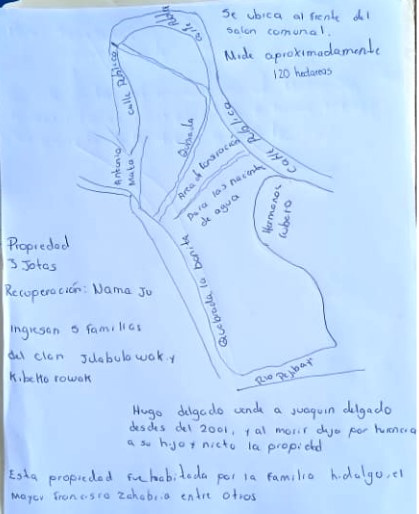 Se ubica al frente del
salon comunal.
Mide aproximadamente
120 hectareas
calle Publica
calle Publica
Calle Publica
Antonio
Mata
Quebrada
Area de
Para las naciente
de agua
Hermanos
Cubero
Quebrada la bonita
Rio Pejbar
Propiedad
3 Jotas
Recuperación: Nama Ju
Ingresan 5 familias
del clan Julabulu wak. y
Kibekto rowak
Hugo delgado vende a Juaquin delgado
desdes del 2001, y al morir dejo por huencia
a su hijo y nieto la propiedad
Esta propiedad fue habitada por la familia hidalgo, el
mayor francisco Zahabria entre otros